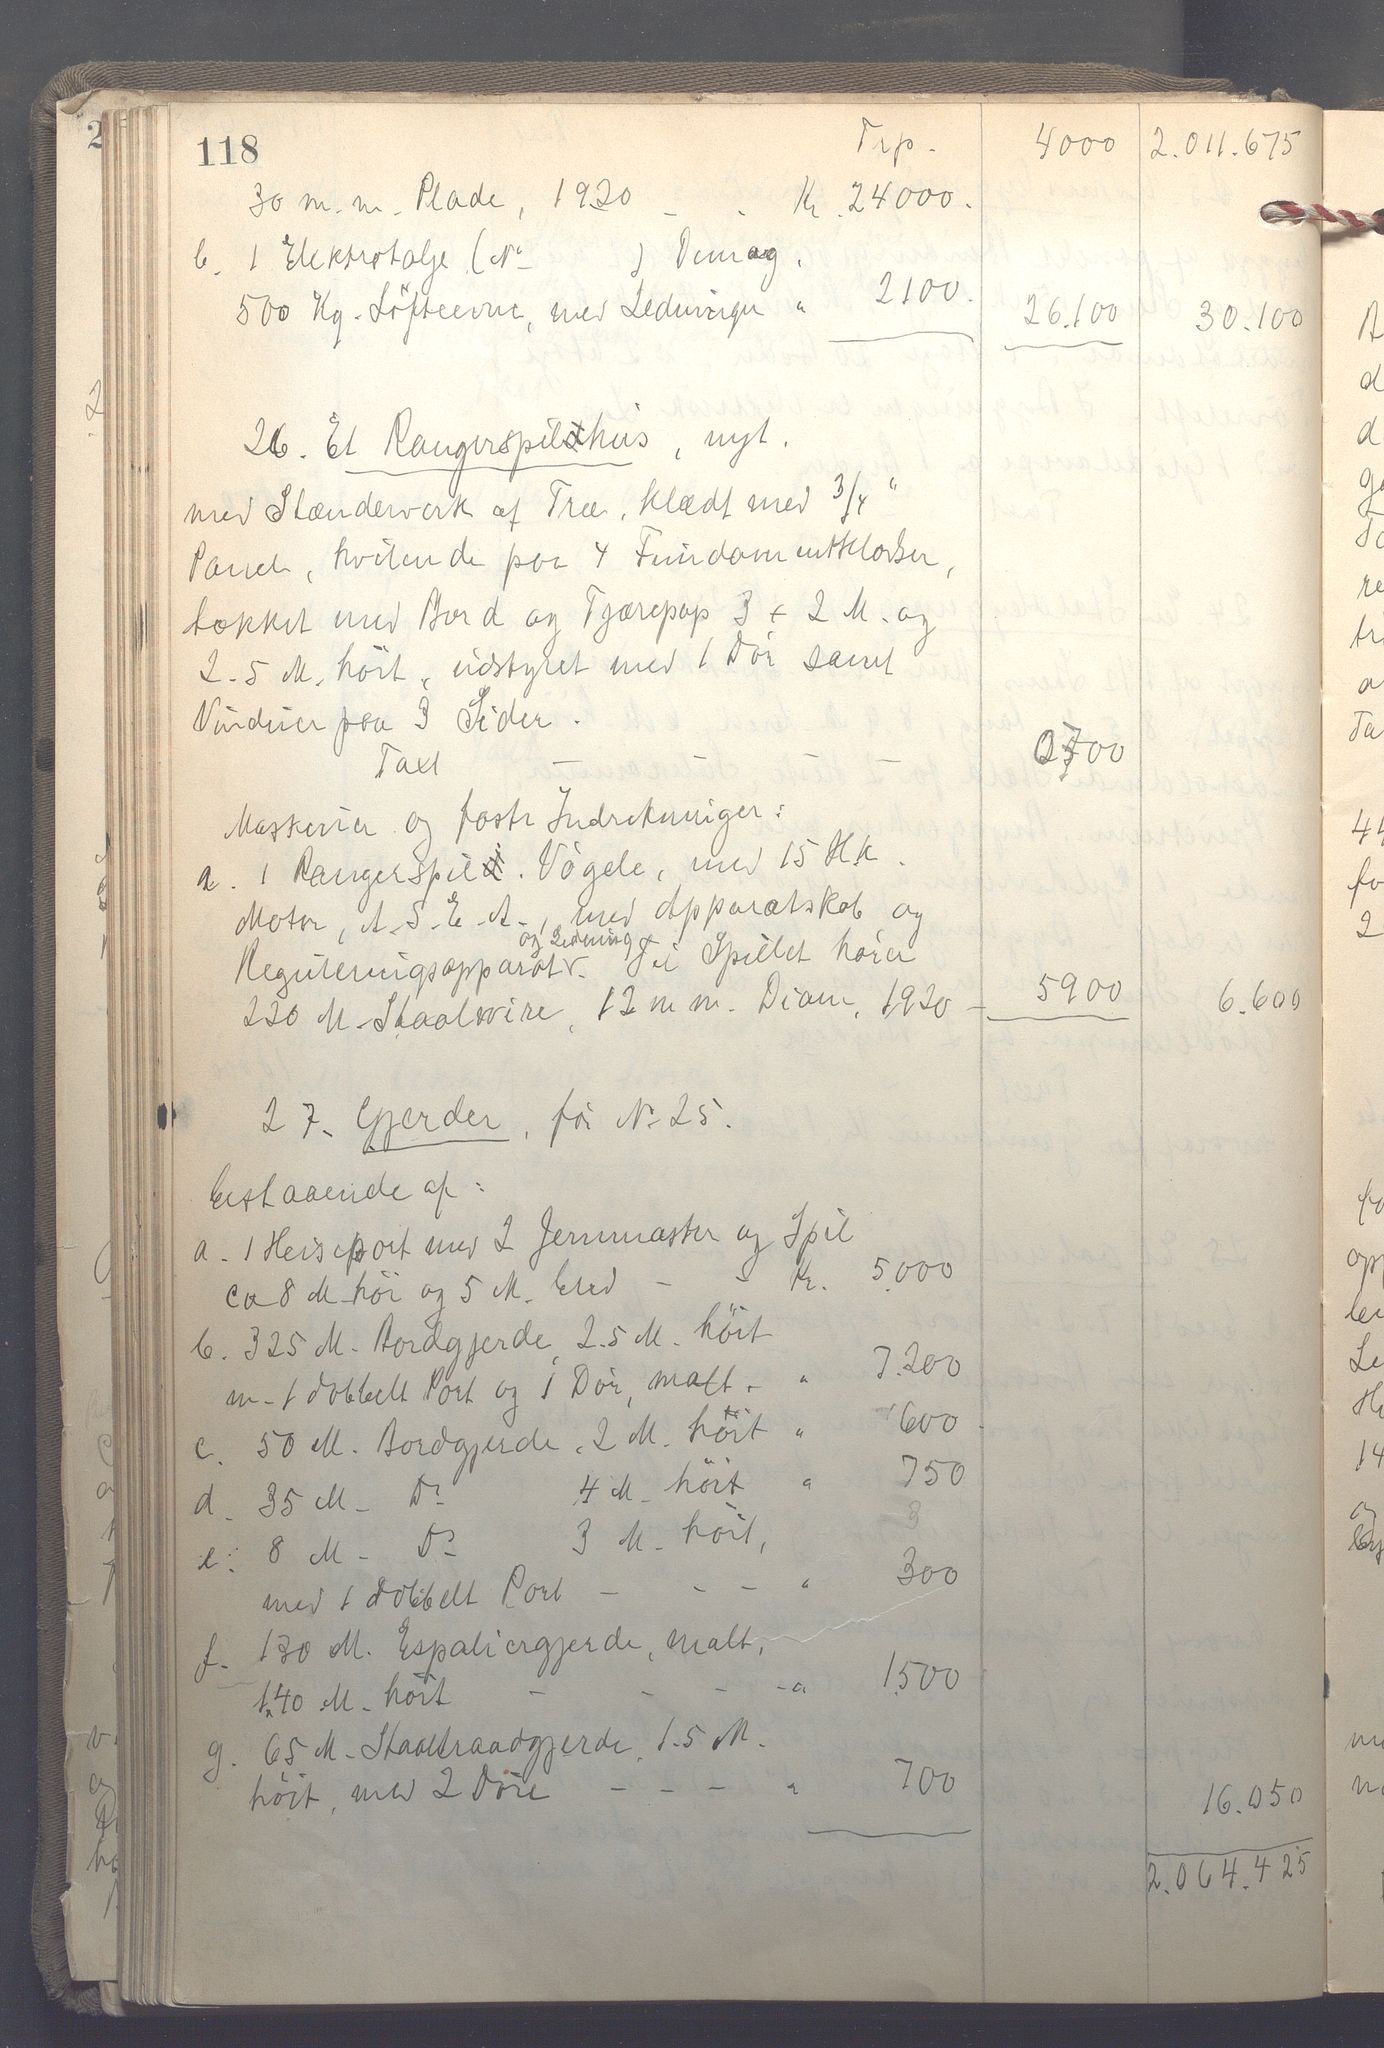 118 Trp. 4000 2.011.675
30 m.m. Plade, 1920 - - Kr. 24000.
b. 1 Elektrotalje (No ) Demag,
500 Kg. Löfteevne, med Ledninger " 2100. 26.100 30.100
26. Et Rangerspilhus, nyt.
med Stænderverk af Træ, klædt med 3/4 "
Panel, hvilende paa 4 Fundamentklodser,
tækket med Bord og Tjærepap 3 x 2 M. og
2.5 M. höit, udstyret med 1 Dör samt
Vinduer paa 3 Sider.
Taxt - - 0700
Maskiner og faste Indretninger:
a. 1 Rangerspil. Vögele, med 15 Hk.
Motor, A.S.E.A., med Apparatskab og
og Ledninger
Reguleringsapparat. Til Spillet hörer
220 M. Staalwire, 12 m m. Diam, 1920 - 5900 6.600
27. Gjerder, för No 25.
bestaaende af:
a. 1 Heiseport med 2 Jernmaster og Spil
ca 8 M höi og 5 M. bred - - Kr. 5.000
b. 325 M. Bordgjerde, 2.5 M. höit
m. 1 dobbelt Port og 1 Dör, malt. " 7.200
c. 50 M. Bordgjerde, 2 M. höit " 600.
d. 35 M. Do 4 M. höit " 750
e. 8 M. Do 3 M. höit,
med 1 dobbelt Port - - - " 300
f. 130 M. Espaliergjerde, malt,
1.40 M. höit - - - " 1.500
g. 65 M. Staaltraadgjerde, 1.5 M.
höit, med 2 Döre - - - " 700 16.050
2.064.425